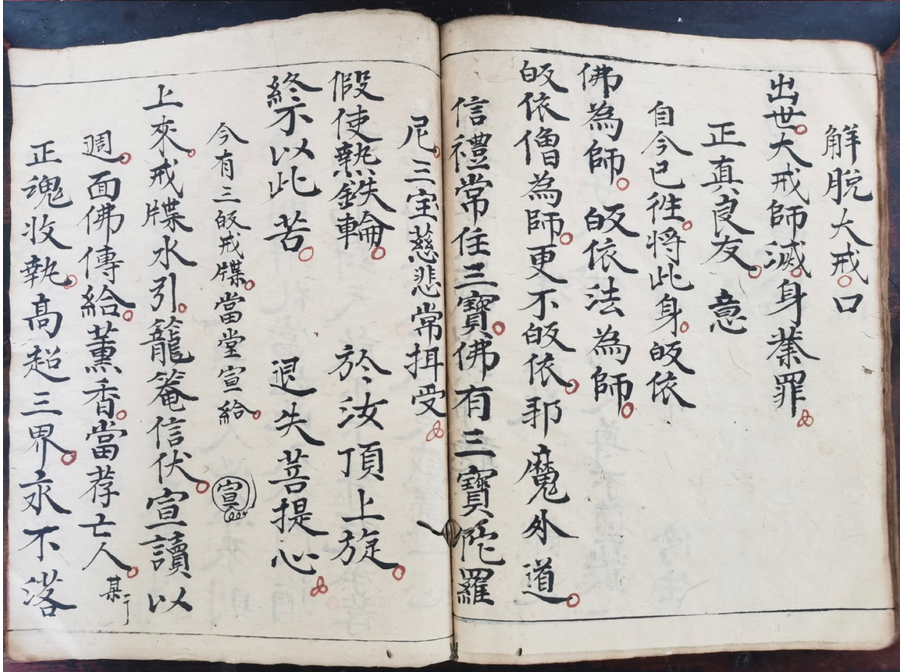 解脫大戒口
出世大戒師滅身蓁罪
正真良友 意
自今已徃將此身皈依
佛為師 皈依法為師
皈依僧為師更不皈依邪魔外道
信禮常任三寶佛有三寶陀羅
尼三宝慈悲常揖受
假使熱鉄輪 於汝頂上旋
終示以此苦 退失菩提心
今有三皈戒牒當堂宣給 宣
上來戒牒水引籠菴信伏宣讀以
週面佛傳給薰香當荐亡人某
正魂收執高超三界永不落